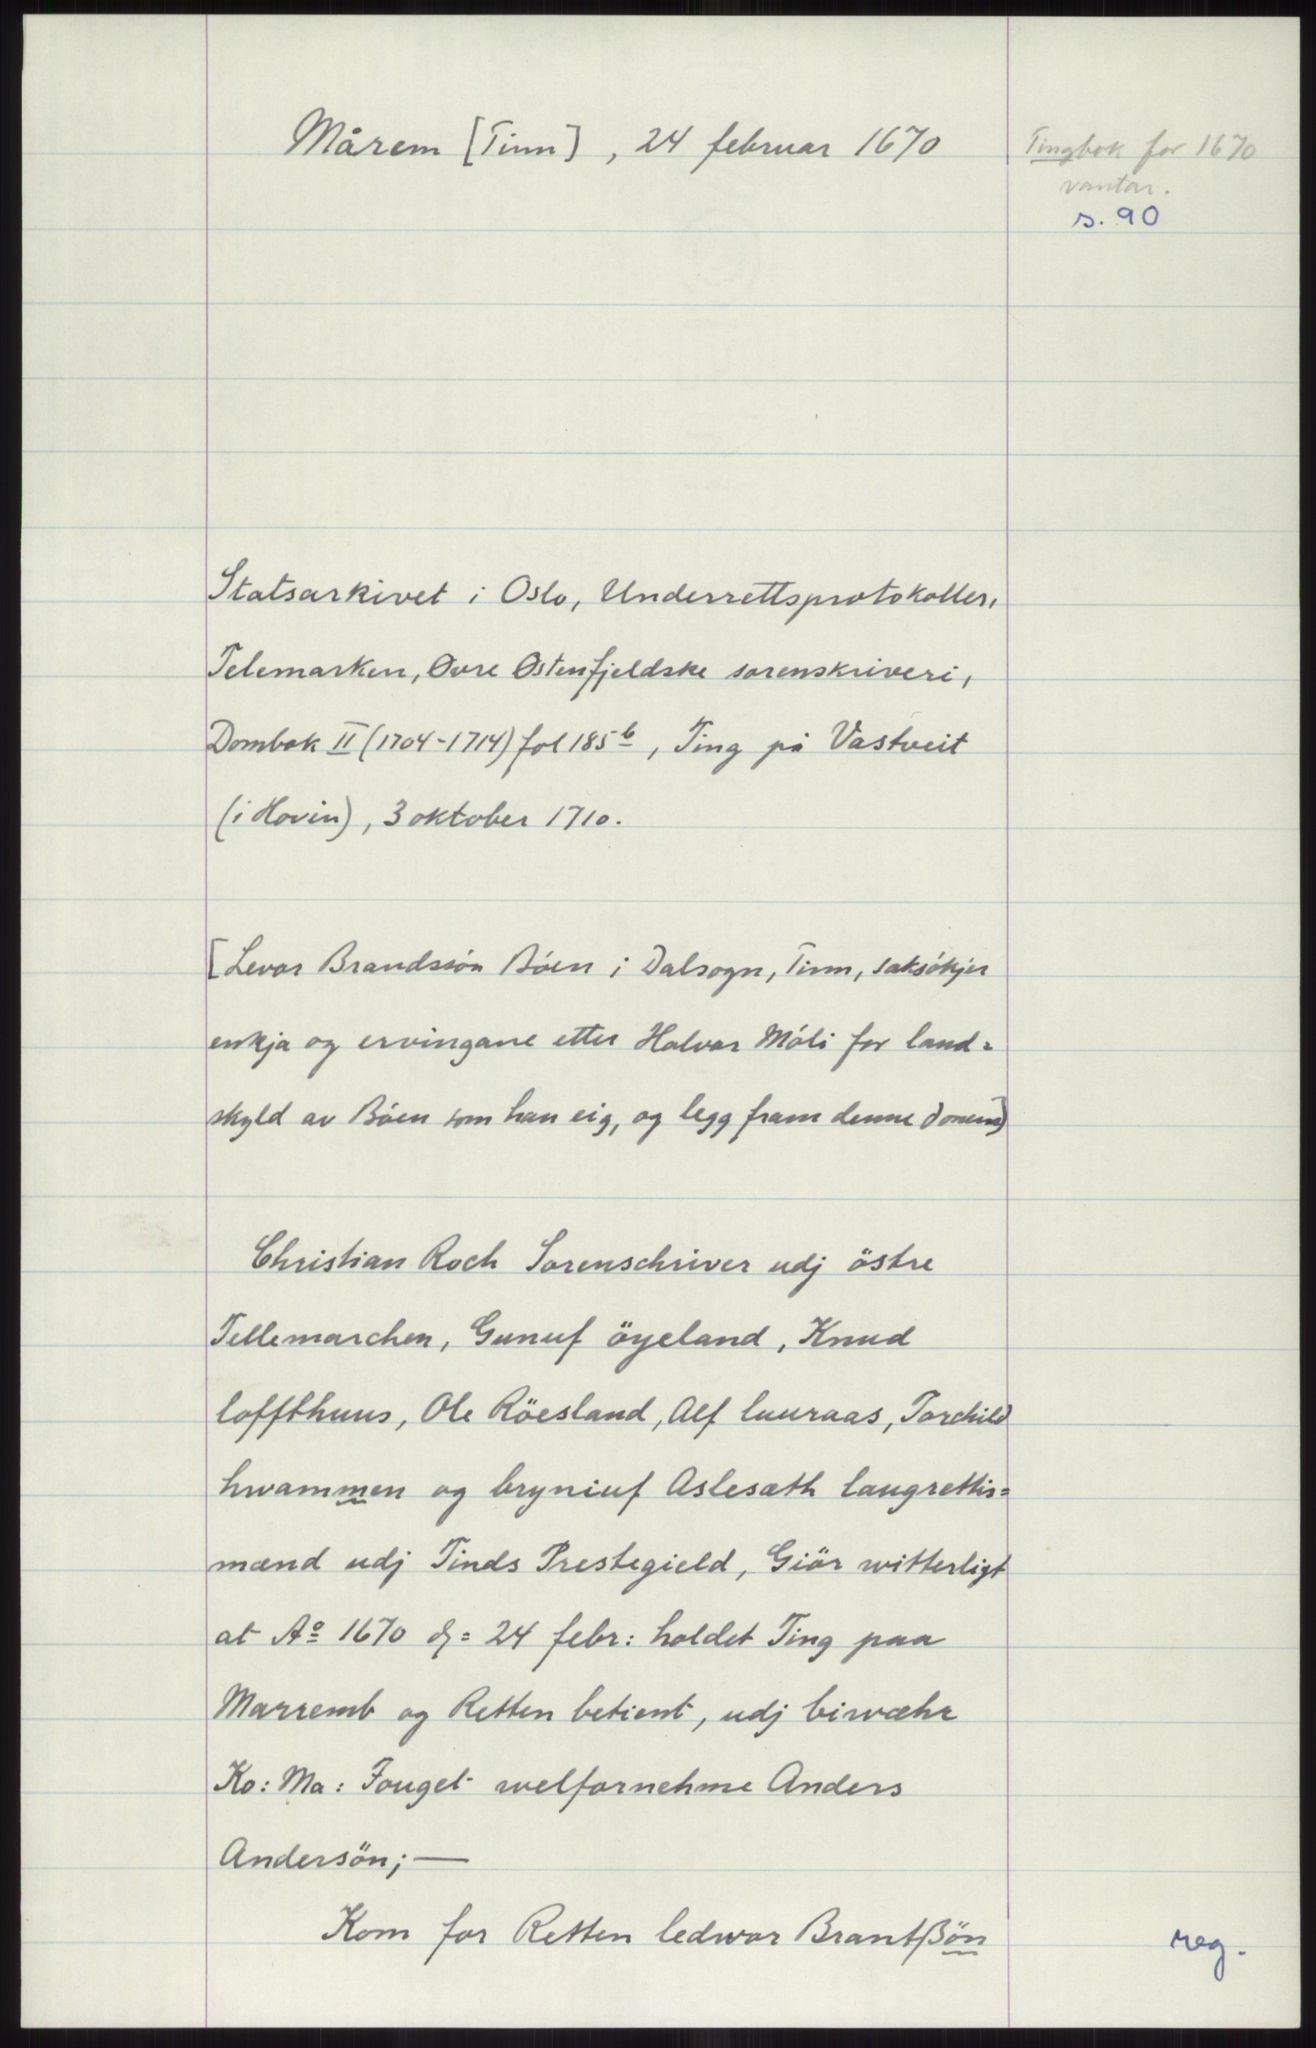 Mårem [Tinn], 24 februar 1670
Tingbok for 1670
vantar.
s. 90
Statsarkivet i Oslo, Underrettsprotokoller,
Telemarken, Øvre Østenfjeldske sorenskriveri,
Dombok II (1704-1714) fol 185b, Ting på Vastveit
(i Hovin), 3 oktober 1710.
[Levor Brandssön Böen i Dalsogn, Tinn, saksökjer
enkja og ervingane etter Halvor Möli for land=
skyld av Böen som han eig, og legg fram denne domen]
Christian Roch Sorenschriver udj östre
Tellemarchen, Gunuf öyeland, Knud
loffthuus, Ole Röesland, Alf luuraas, Torchild
hwammen og bryniuf Aslesæth laugrettis=
mænd udj Tinds Prestegield, Giör witterligt
at Aº 1670 d= 24 febr: holdet Ting paa
Marremb og Retten betient, udj biwæhr
Ko: Ma: Fouget welfornehme Anders
Andersön; —
Kom for Retten ledwor Brantßön
reg.